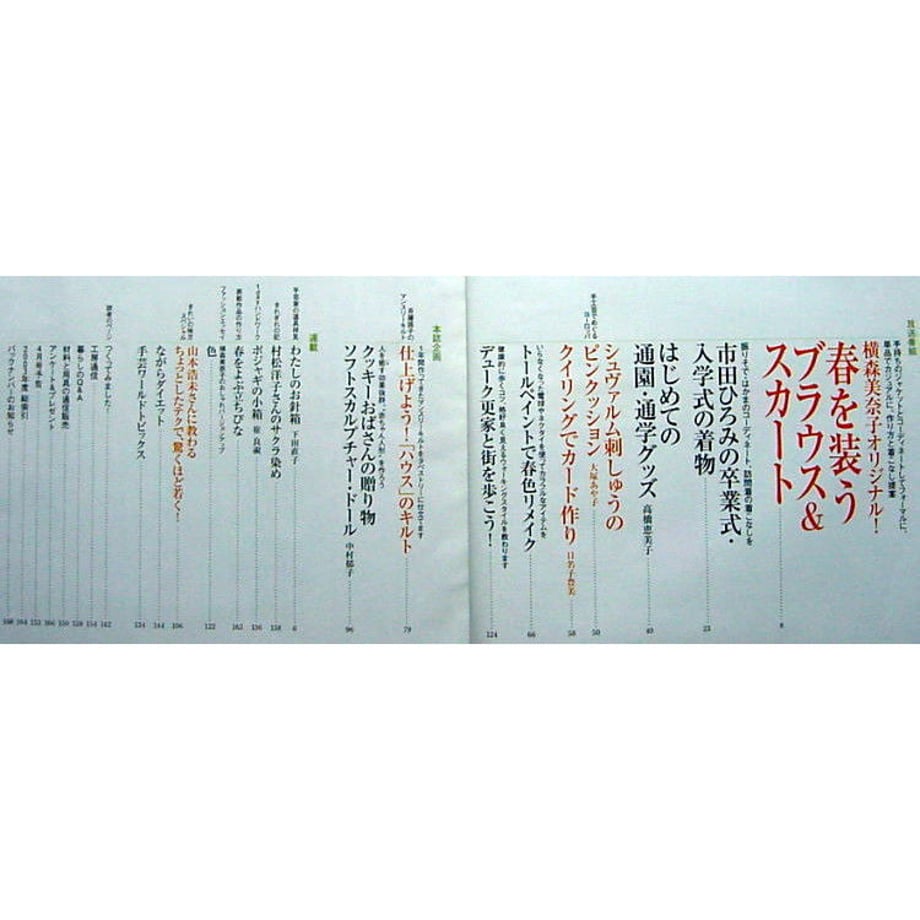 放送番組
手持ちのジャケットとコーディネートしてフォーマルに、
単品でカジュアルに。作り方と着こなし提案
横森美奈子オリジナル!
春を装う
ブラウス&
スカート
8
振りそで・はかまのコーディネート、訪問着の着こなしを
市田ひろみの卒業式・
入学式の着物
23
はじめての
通園・通学グッズ 高橋恵美子
40
手工芸でめぐる
ヨーロッパ
シュヴァルム刺しゅうの
ピンクッション 大塚あや子
50
クイリングでカード作り 日名子豊美
58
いらなくなった電球やネクタイを使ってカラフルなアイテムを
トールペイントで春色リメイク
66
健康的に歩くコツ、格好良く見えるウォーキングスタイルを教わります
デューク更家と街を歩こう!
124
本誌企画
斉藤謠子の
アンスリーキルト
1年間作ってきたアンスリーキルトをタペストリーに仕立てます
仕上げよう!「ハウス」のキルト
79
人を癒す効果抜群。“赤ちゃん人形”を作ろう
クッキーおばさんの贈り物
ソフトスカルプチャー・ドール 中村郁子
96
連載
手芸家の道具拝見
わたしのお針箱 下田直子
6
きれぎれの記
村松洋子さんのサクラ染め
138
1dayハンドワーク
ポジャギの小箱 崔良淑
136
表紙作品の作り方
春をよぶ立ちびな
163
ファッションエッセイ
色
122
きれいの味方
スペシャル
山本浩未さんに教わる
ちょっとしたテクで、驚くほど若く!
106
ながらダイエット
144
手芸ワールド・トピックス
134
読者のページ
つくってみました!
142
工房通信
154
暮らしのQ&A
158
材料と用具の通信販売
150
アンケート&プレゼント
166
4月号予告
153
2003年度総索引
164
バックナンバーのお知らせ
168